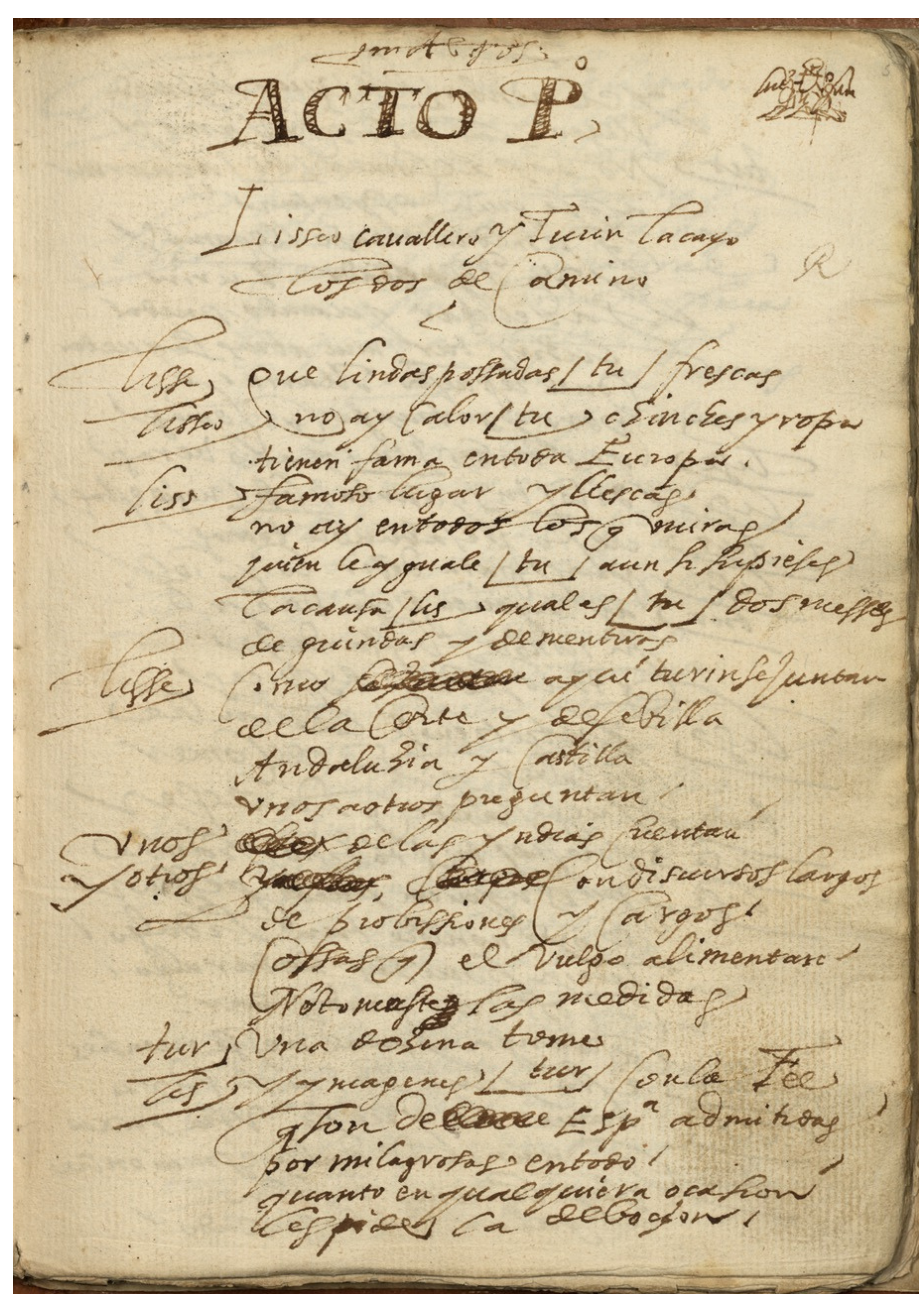 ACTO P.º
Lisseo cauallero y Turin lacayo
los dos de Camino
R
lisse, que lindas possadas / tu / frescas
lisseo no ay calor / tu chinches y ropa
tienen fama en toda Europa.
liss famoso lugar yllescas
no ay en todos los q miras
quien le yguale / tu / aun si supieses
la causa / lis qual es / tu / dos messes
de guindas y de mentiras
lisse, Como aqui turin se Juntan
de la Corte y de sebilla
Andaluzia y Castilla
vnos a otros preguntan
vnos de las yndias cuentan
y otros Con discursos largos
de probissiones y Cargos
Cossas q el vulgo alimentan
No tomaste las medidas
tur, Vna dozina tome
lis, y ymagenes / tur / Con la Fee
q son de Espª admitidas
por milagrosas en todo
quanto en qualquiera ocasion
les pide la deboçion